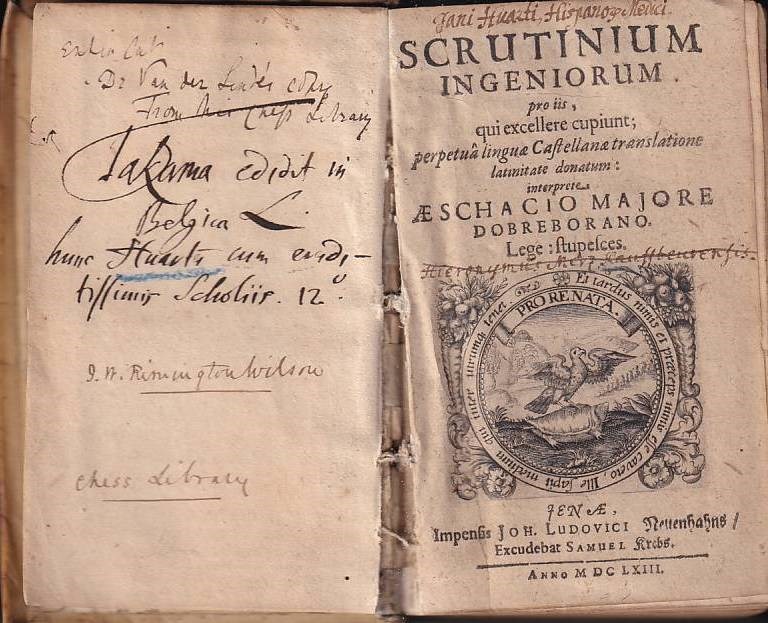 Dr Van der Linde's copy
From his Chess Library
Takama edidit in
Belgica L.
hunc Huarti cum erudi-
tissimis Scholiis. 12°.
J. W. Rimington Wilson
Chess Library
Jani Huarti, Hispano Medici.
SCRUTINIUM
INGENIORUM.
pro iis,
qui excellere cupiunt;
perpetuâ linguæ Castellanæ translatione
latinitate donatum:
interprete
ÆSCHACIO MAJORE
DOBREBORANO.
Lege; stupesces.
Hieronymus Merz Kauffbeurensis.
PRO RE NATA.
Et tardus nimis et præceps nimis esse caveto, Ille sapit medium qui inter utrumque tenet
JENÆ,
Impensis JOH. LUDOVICI Neuenhahns/
Excudebat SAMUEL Krebs.
ANNO M DC LXIII.